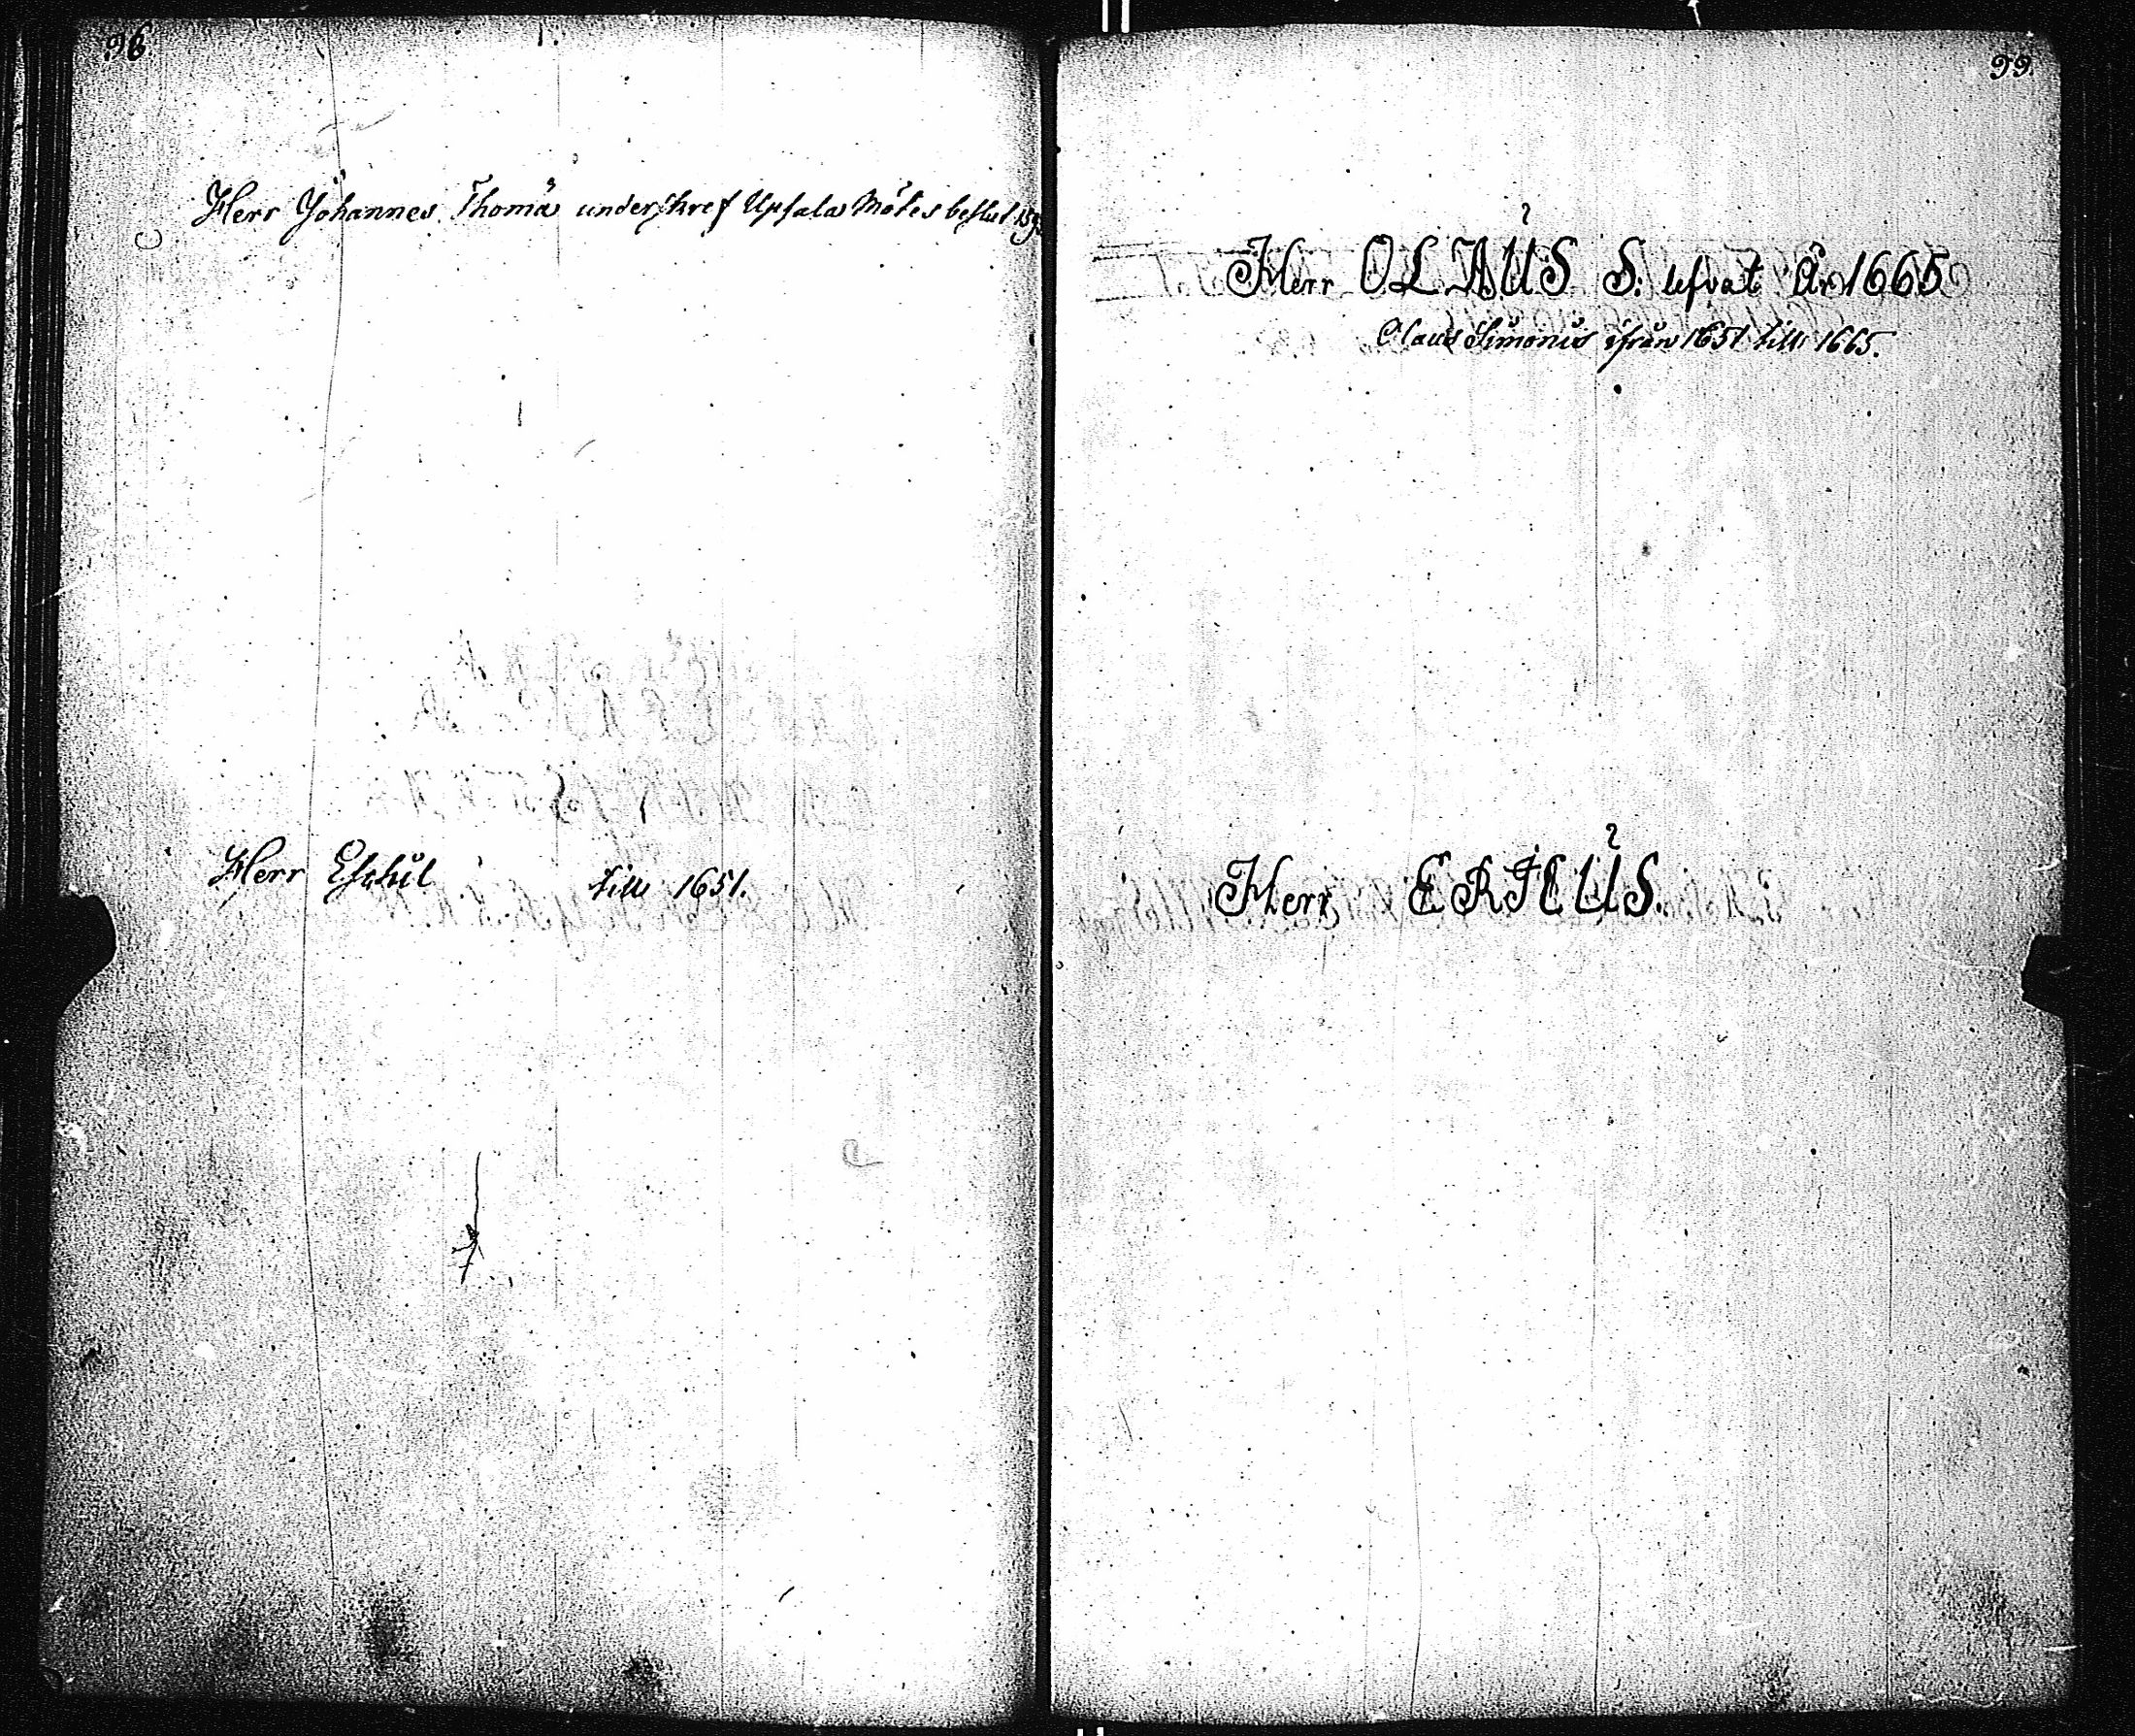 96
Herr Johannes Thomä underskref Upsala Mötes beslut 1593
Herr Eschil till 1651.
99
Herr OLAUS S. lefvat År 1665
Olaus Simonis ifrån 1651 till 1665.
Herr ERICUS.